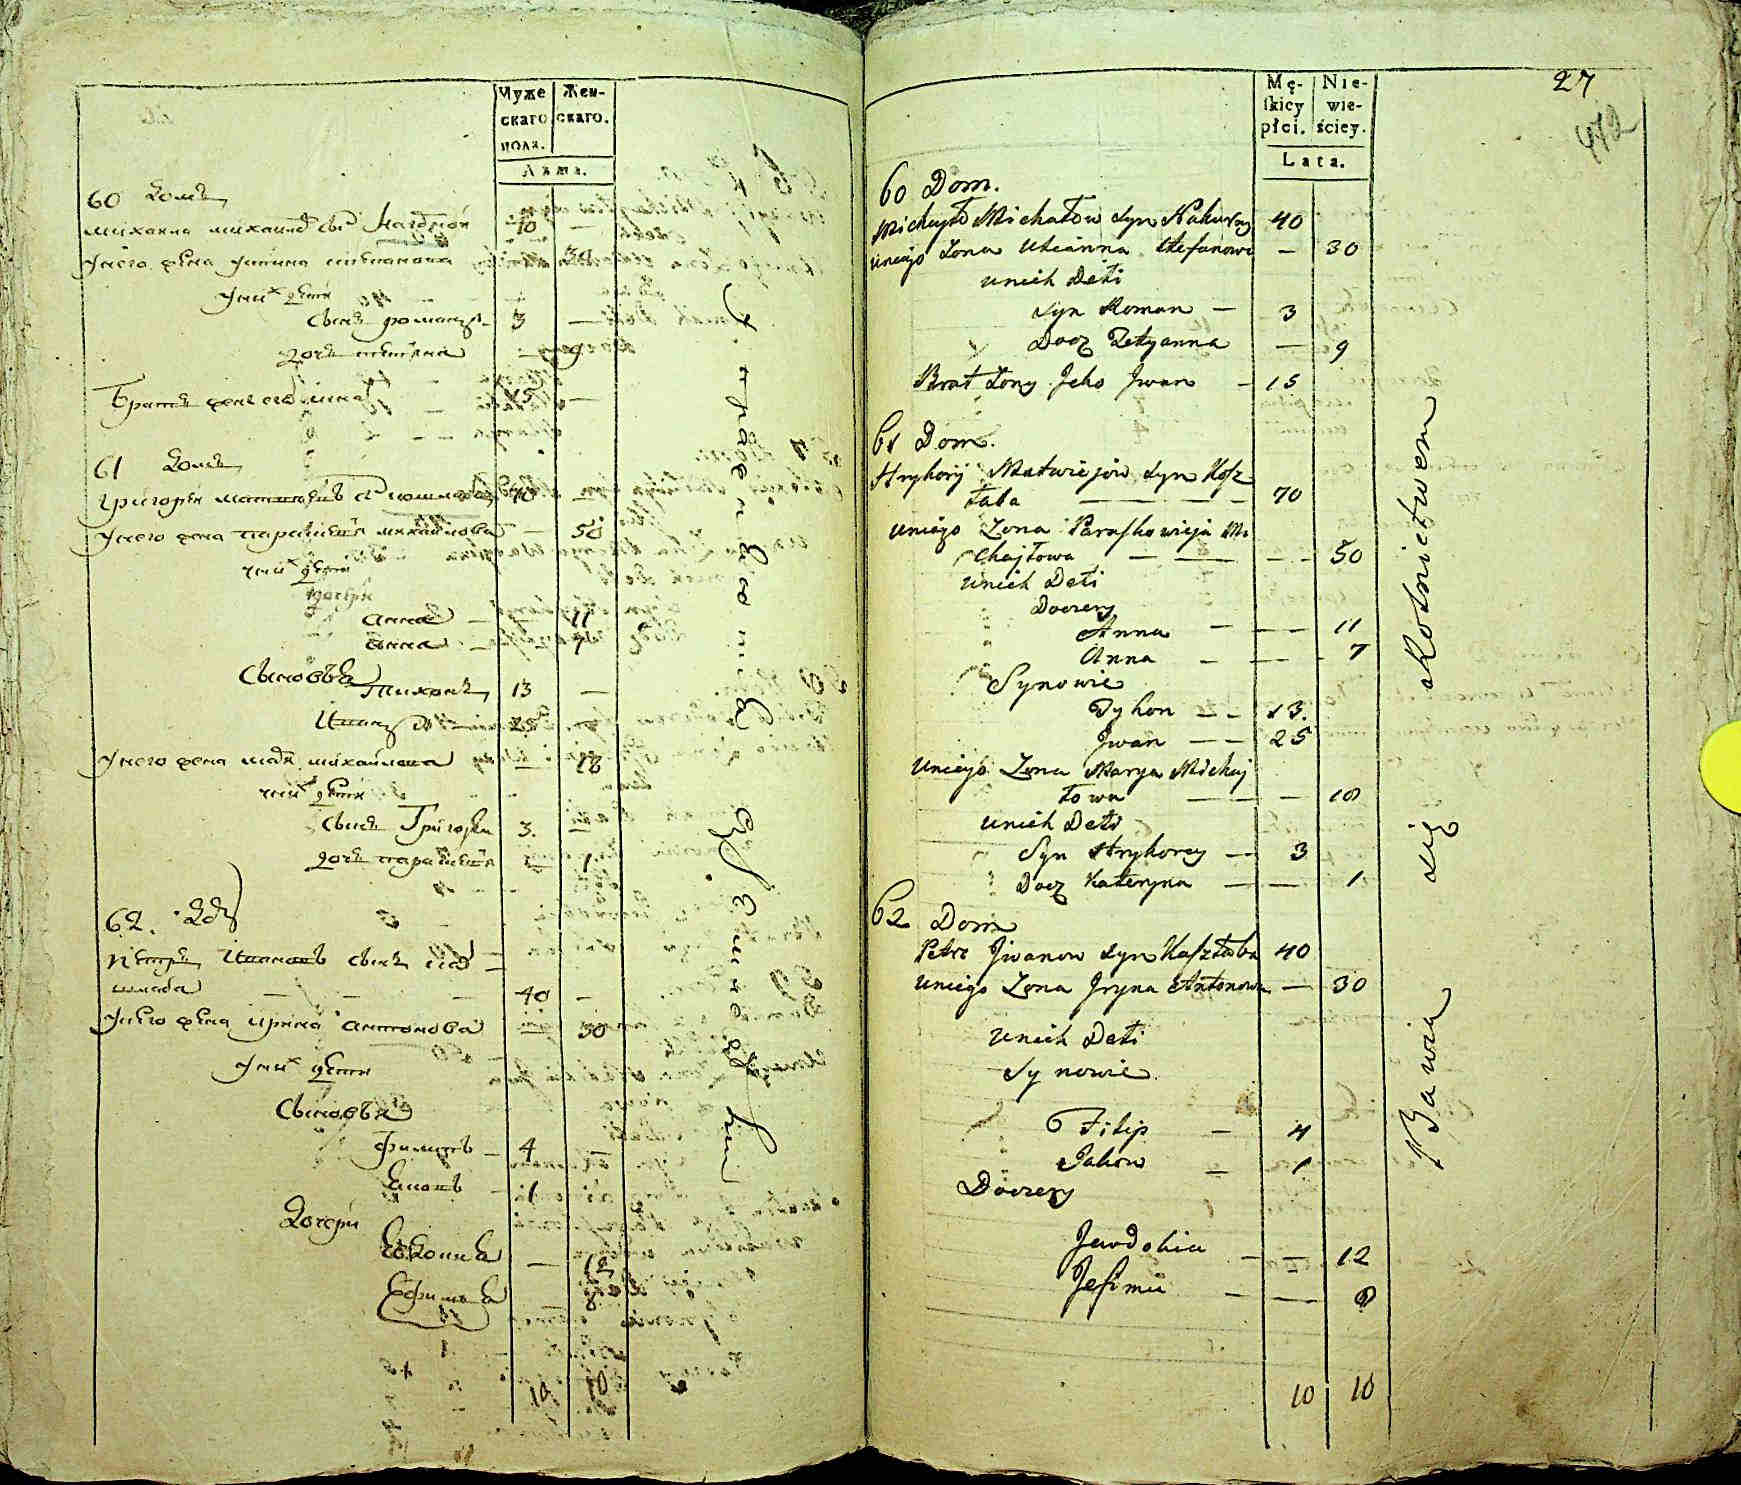 Муже
скаго
полꙋ.
Жен-
скаго.
Лѣта.
60 Домъ
Михайла Михайлов сынъ 40 —
У него жена Улiяна Степанова — 30
У них дети
Сынъ Романъ 3 —
дочь Татiяна — 9
Братъ жены его Иванъ 15 —
61 Домъ
Григорей Матвеевъ сынъ Кошлаба 70 —
У него жена Парасковiя Михайлова — 50
У них дети
дочери
Анна — 11
Анна — 7
Сыновья
Тихонъ 13 —
Иванъ 25 —
У него жена Марья Михайлова — 18
У них дети
Сынъ Григорей 3. —
дочь — 1
62. Домъ
Петръ Ивановъ сынъ Кош
шлаба — — — 40 —
У него жена Ирина Антонова — 30
У них дети
Сыновья
Филипъ — 4
Яковъ — 1
Дочери
Евдокиа — 12
Ефимиа — 8
10 10
27
472
Mę-
ſkiey
płci.
Nie-
wie-
ściey.
Lata.
60 Dom.
Michayło Michałow Syn 40
uniego Zona Ulianna Stefanowa — 30
unich Deti
Syn Roman — 3
Docz Tetyanna — 9
Brat Zony Jeho Jwan — 15
61 Dom.
Hryhory Matwiejow Syn Kosz
łaba — — — 70
uniego Zona Paraſkowieja Mi
chajłowa — — — 50
unich Deti
Doczery
Anna — — — 11
Anna — — — 7
Synowie
Tyhon — — 13.
Jwan — — 25
uniego Zona Marya Michaj
łowa — — — 18
unich Deti
Syn Hryhorey — 3
Docz Kateryna — — 1
62 Dom
Petro Jwanow Syn Kaſzłaba 40
uniego Zona Jryna Antonowa — 30
unich Deti
Synowie
Filip — 4
Jakow — 1
Doczery
Jewdokia — — 12
Jefimia — — 8
10 10
Bawia się Rolnictwem